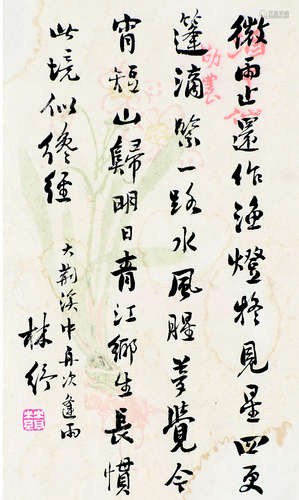 微雨止還作漁燈見星四更
篷滴緊一路水風腥莫覺今
宵短山歸明日青江鄉生長慣
此境似纔經
大荊溪中再次逢雨
林紓